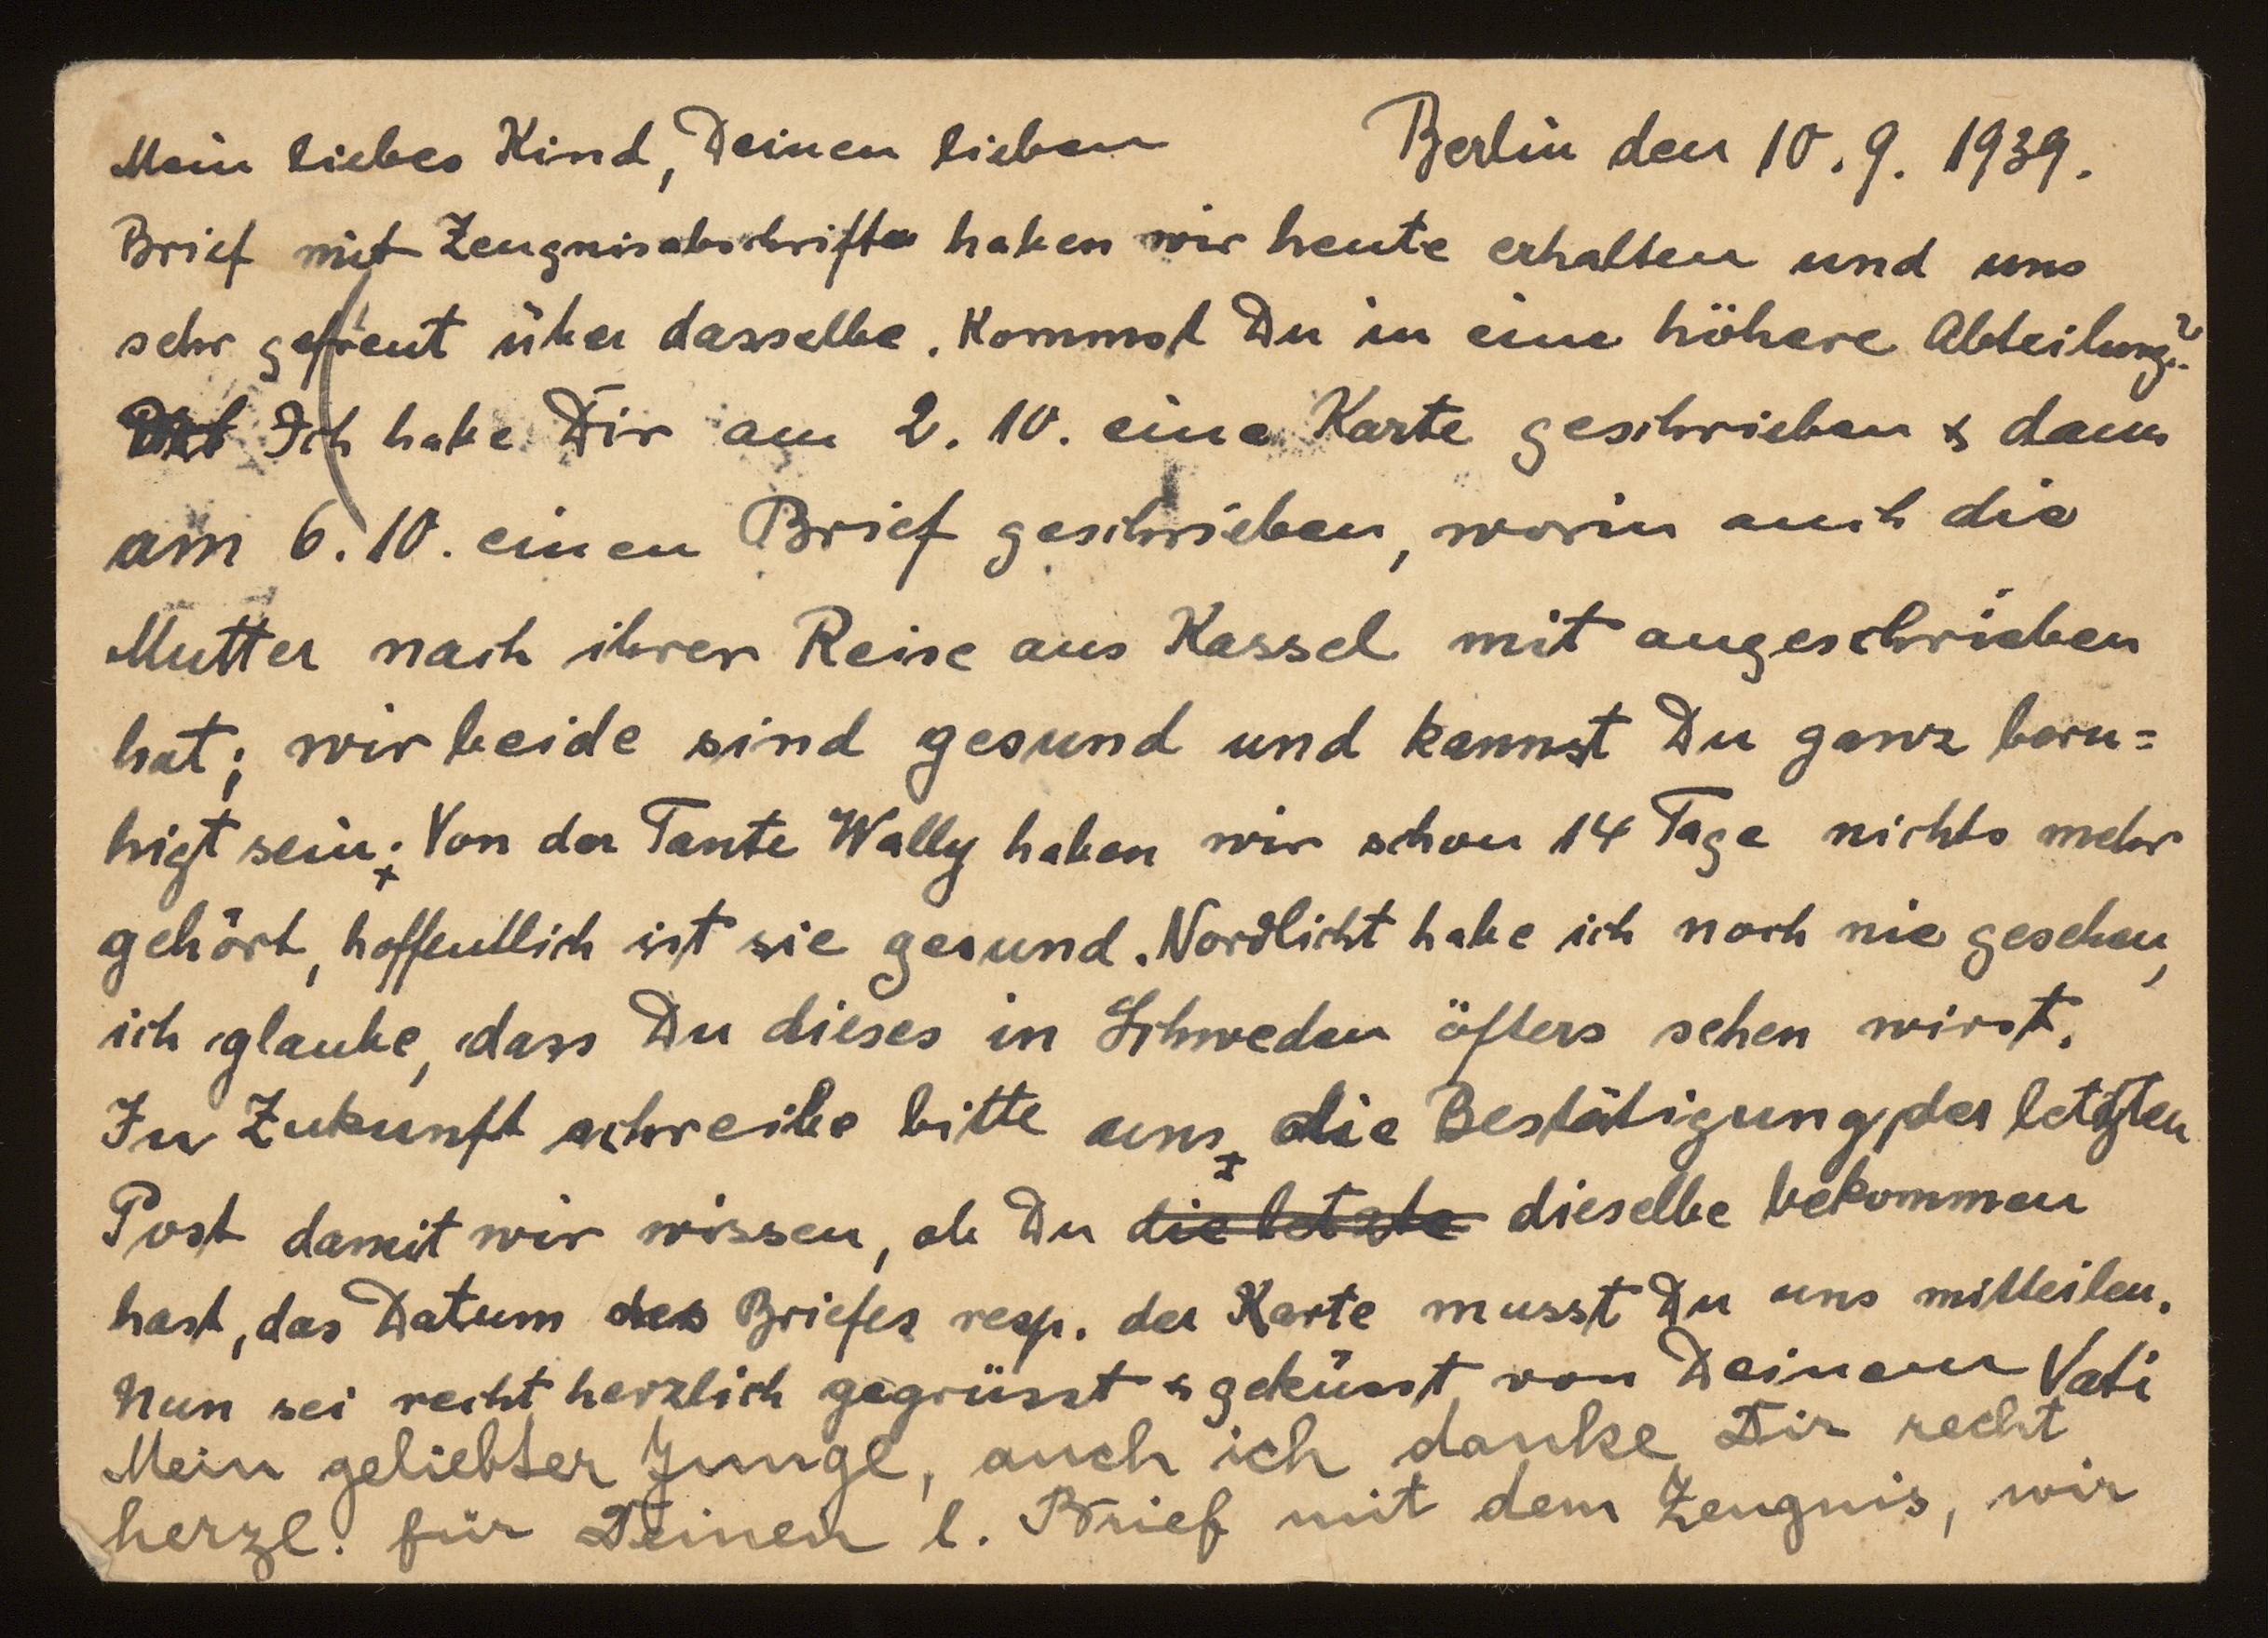 Mein liebes Kind, Deinen lieben Berlin den 10. 9. 1939.
Brief mit Zeugnisabschrift haben wir heute erhalten und uns
sehr gefreut über dasselbe. Kommst Du in eine höhere Abteilung?
Ich habe Dir am 2. 10. eine Karte geschrieben & dann
am 6. 10. einen Brief geschrieben, worin auch die
Mutter nach ihrer Reise aus Kassel mit angeschrieben
hat; wir beide sind gesund und kannst Du ganz beru=
higt sein; Von der Tante Wally haben wir schon 14 Tage nichts mehr
gehört, hoffentlich ist sie gesund. Nordlicht habe ich noch nie gesehen,
ich glaube, dass Du dieses in Schweden öfters sehen wirst.
In Zukunft schreibe bitte uns die Bestätigung der letzten
Post damit wir wissen, ob Du die letzte dieselbe bekommen
hast, das Datum des Briefes resp. der Karte musst Du uns mitteilen.
Nun sei recht herzlich gegrüsst & geküsst von Deinem Vati
Mein geliebter Junge, auch ich danke Dir recht
herzl. für Deinen l. Brief mit dem Zeugnis, wir